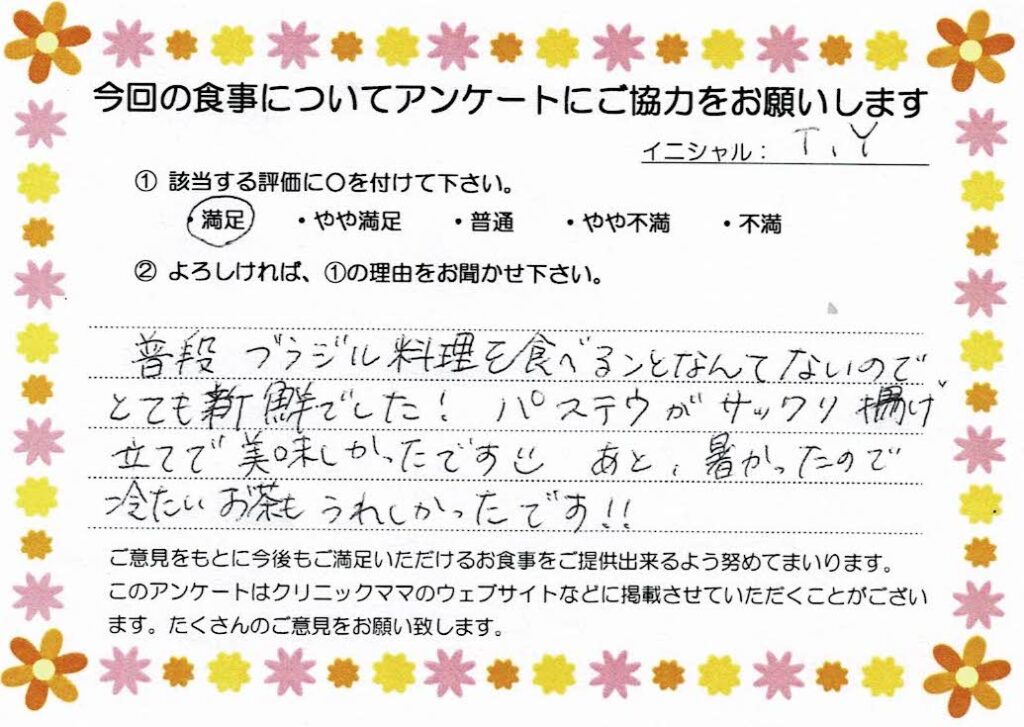 今回の食事についてアンケートにご協力をお願いします
イニシャル： T、Y
① 該当する評価に〇を付けて下さい。
・満足 ・やや満足 ・普通 ・やや不満 ・不満
② よろしければ、①の理由をお聞かせ下さい。
普段 ブラジル料理を食べることなんてないので
とても新鮮でした！ パステウがサックリ揚げ
立てで美味しかったです あと、暑かったので
冷たいお茶もうれしかったです!!
ご意見をもとに今後もご満足いただけるお食事をご提供出来るよう努めてまいります。
このアンケートはクリニックママのウェブサイトなどに掲載させていただくことがござい
ます。たくさんのご意見をお願い致します。